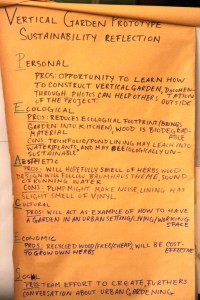 VERTICAL GARDEN PROTOTYPE
SUSTAINABILITY REFLECTION
PERSONAL
PROS: OPPORTUNITY TO LEARN HOW
TO CONSTRUCT VERTICAL GARDEN, DOCUMEN-
TATION
THROUGH PHOTOS CAN HELP OTHERS OUTSIDE
OF THE PROJECT.
ECOLOGICAL
PROS: REDUCES ECOLOGICAL FOOTPRINT/BRINGS
GARDEN INTO KITCHEN, WOOD IS BIODEGRAD-
ABLE
MATERIAL
CONS: POND LINING MAY LEACH INTO
WATER/PLANTS, AND MAY BE ECOLOGICALLY UN-
SUSTAINABLE
AESTHETIC
PROS: WILL HOPEFULLY SMELL OF HERBS, WOOD
DESIGN WILL FOLLOW THEME, SOUND
OF RUNNING WATER
CONS: PUMP MIGHT MAKE NOISE, LINING HAS
SLIGHT SMELL OF VINYL
CULTURAL
PROS: WILL ACT AS EXAMPLE OF HOW TO HAVE
A GARDEN IN AN URBAN SETTING/LIVING/WORKING
SPACE
ECONOMIC
PROS: RECYCLED WOOD WILL BE COST-
EFFECTIVE
TO GROW OWN HERBS
SOCIAL
PROS: TEAM EFFORT TO CREATE, FURTHERS
CONVERSATION ABOUT URBAN GARDENING